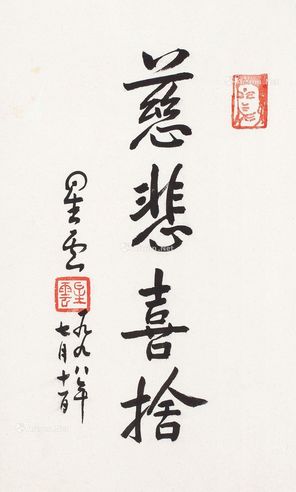 慈悲喜捨
星云
星雲
一九九八年
七月十日